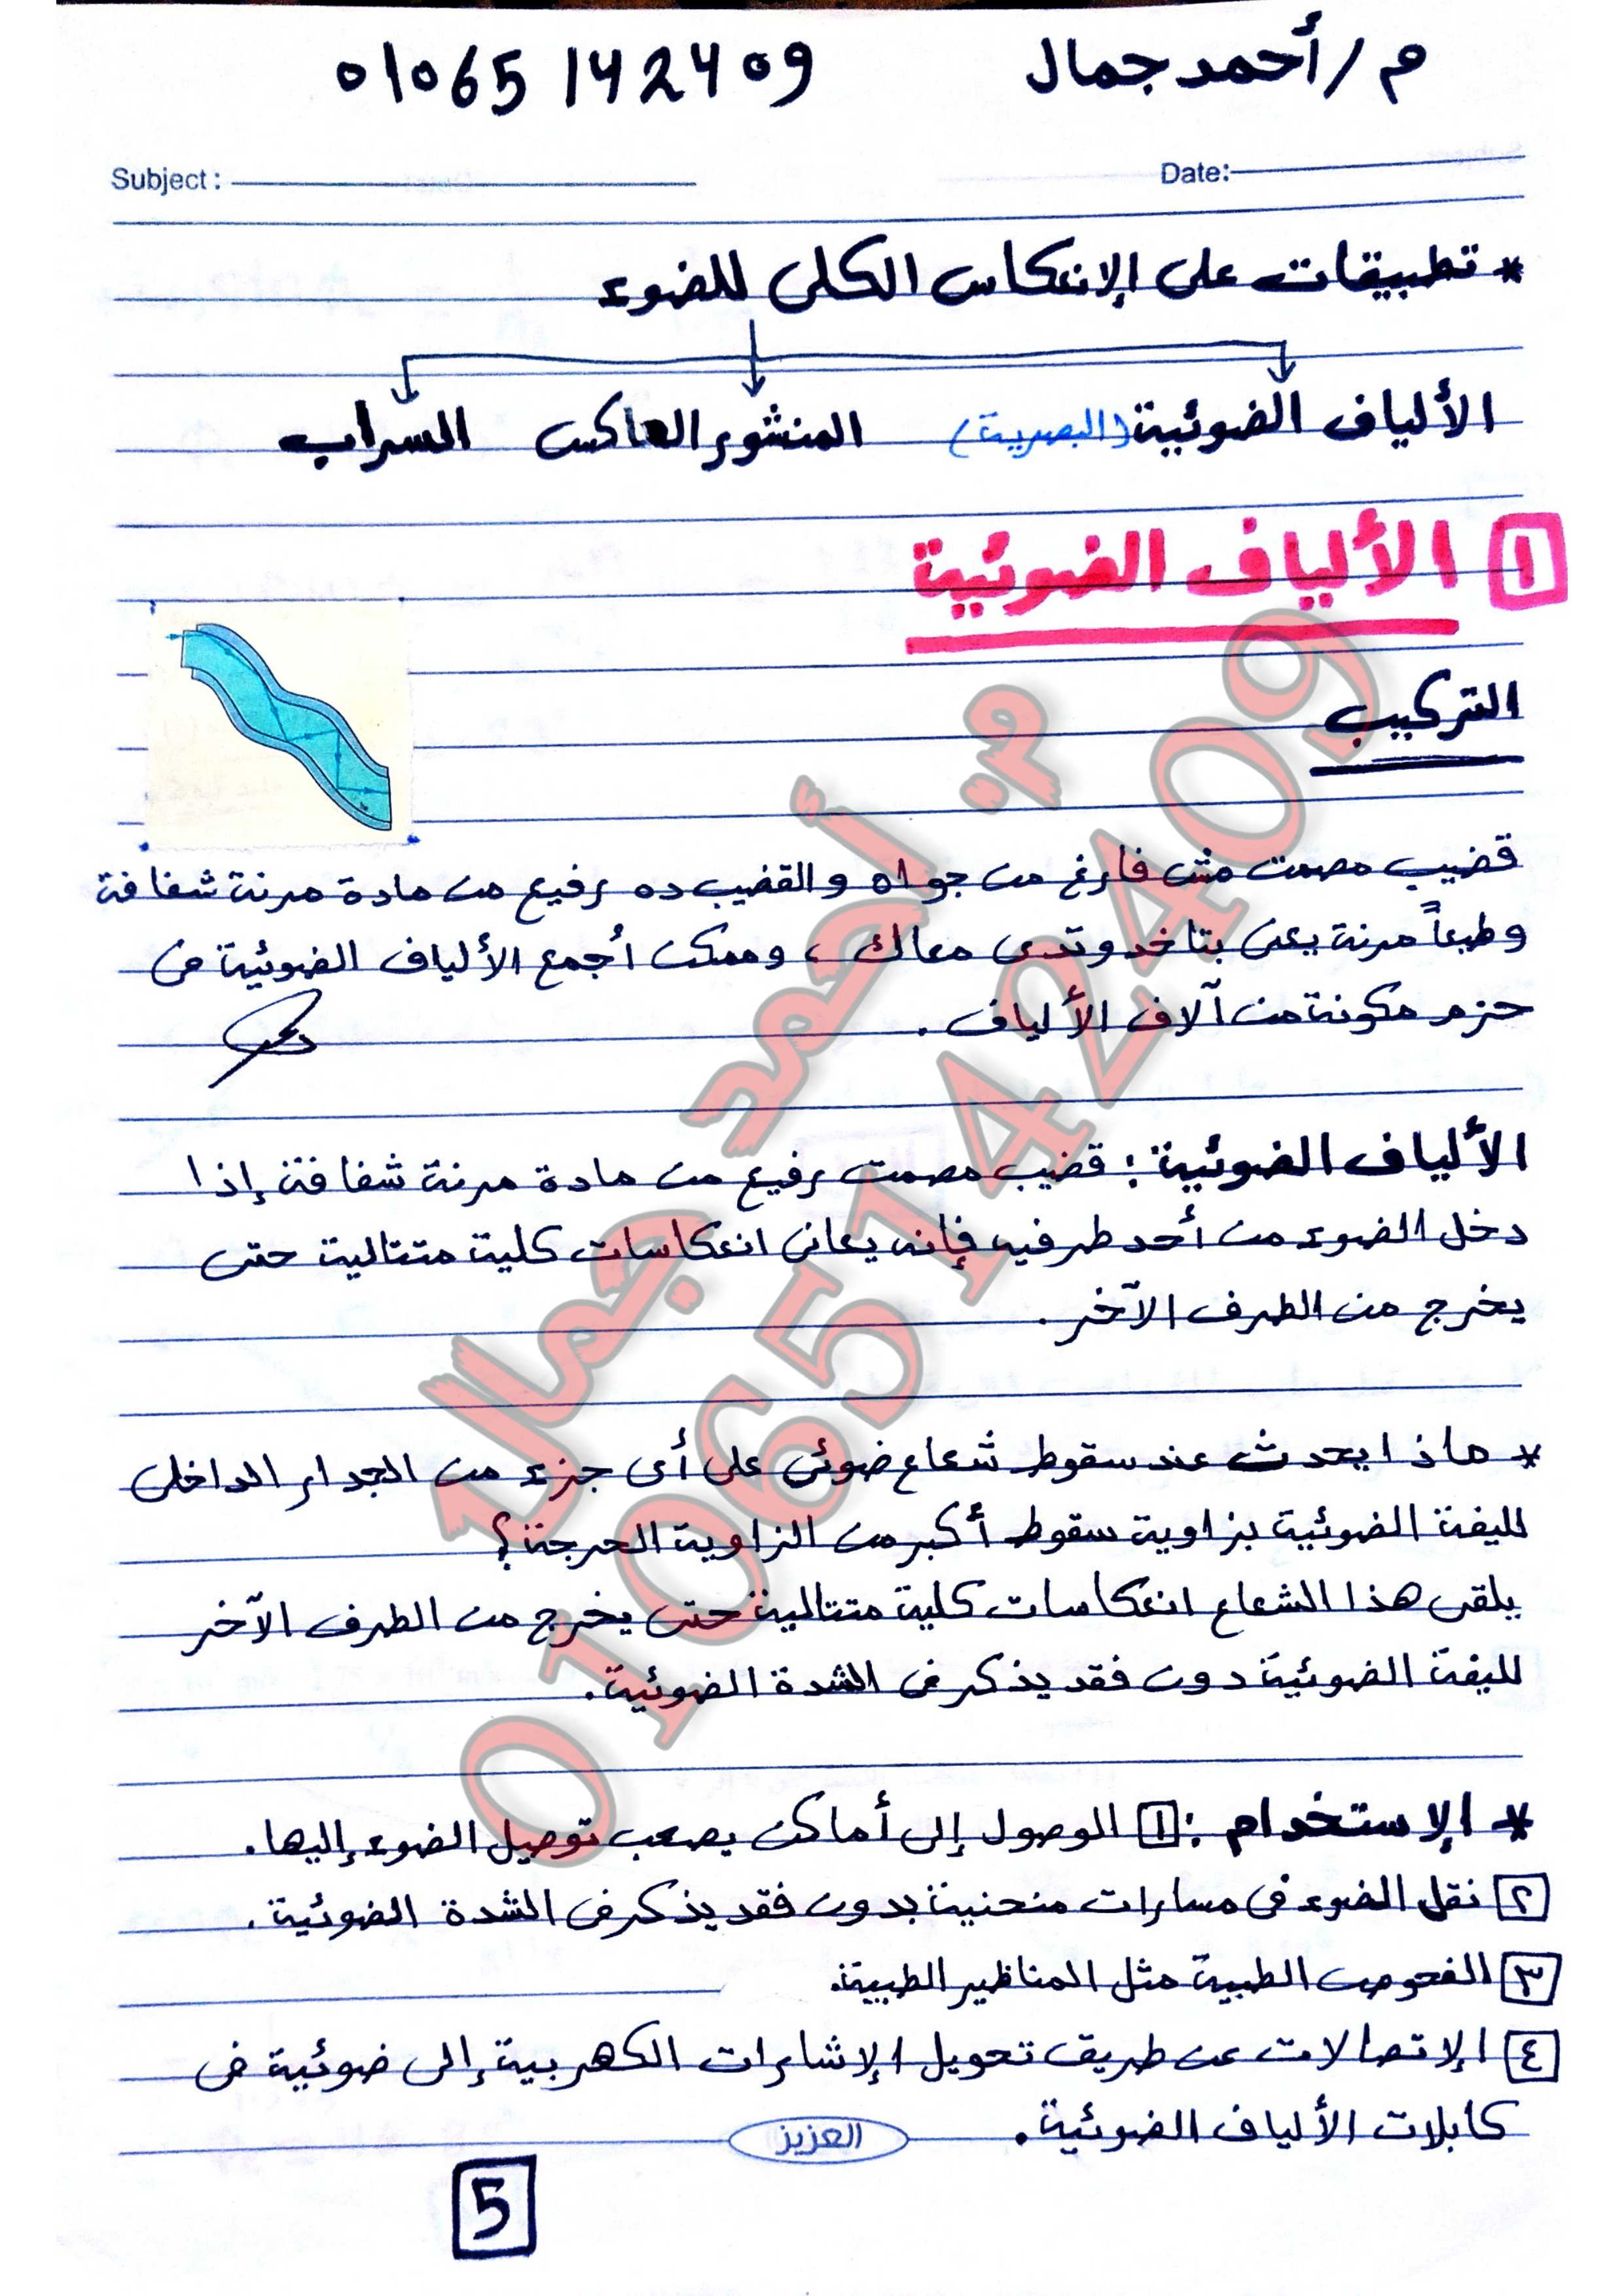 م/أحمد جمال 01065142409
Subject: Date:
* تطبيقات على الإنعكاس الكلى للضوء
الألياف الضوئية (البصرية) المنشور العاكس السراب
١ الألياف الضوئية
التركيب
قضيب مصمت مش فارغ من جواه والقضيب ده رفيع من مادة مرنة شفافة
وطبعاً مرنة يعنى بتاخد وتدى معاك، وممكن أجمع الألياف الضوئية فى
حزم مكونة من آلاف الألياف.
الألياف الضوئية: قضيب مصمت رفيع من مادة مرنة شفافة إذا
دخل الضوء من أحد طرفيه فإنه يعانى انعكاسات كلية متتالية حتى
يخرج من الطرف الآخر.
* ماذا يحدث عند سقوط شعاع ضوئى على أى جزء من الجدار الداخلى
لليفة الضوئية بزاوية سقوط أكبر من الزاوية الحرجة؟
يلقى هذا الشعاع انعكاسات كلية متتالية حتى يخرج من الطرف الآخر
لليفة الضوئية دون فقد يذكر فى الشدة الضوئية.
* الإستخدام: ١ الوصول إلى أماكن يصعب توصيل الضوء إليها.
٢ نقل الضوء فى مسارات منحنية بدون فقد يذكر فى الشدة الضوئية.
٣ الفحوص الطبية مثل المناظير الطبية.
٤ الإتصالات عن طريق تحويل الإشارات الكهربية إلى ضوئية فى
كابلات الألياف الضوئية.
العزيز
5
م. أحمد جمال
01065142409